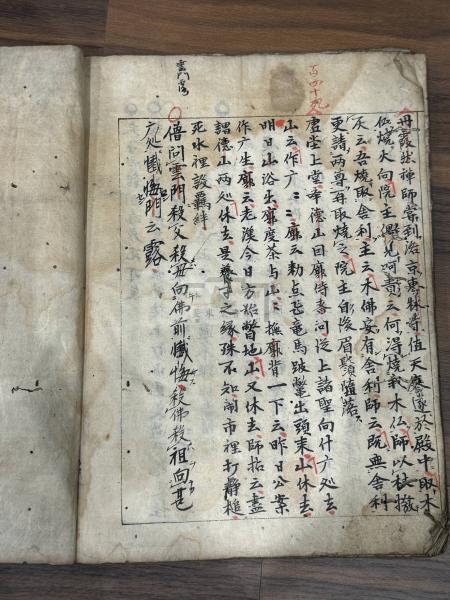 百四十九
丹霞然禅師嘗到洛京惠林寺值天寒遂於殿中取木
仏燒火向院主偶見呵責云何得燒我木仏師以杖撥
灰云吾燒取舎利主云木佛安有舎利師云既無舎利
更請両尊再取燒之院主自後眉鬚墮落
虚堂上堂挙德山因廓侍者問從上諸聖向什广処去
山云作广〻〻廓云勅点飛竜馬跛鱉出頭来山休去
明日山浴出廓度茶与山〻撫廓背一下云昨日公案
作广生廓云老漢今日方始瞥地山又休去師拈云盡
謂德山両処休去是養子之縁殊不知鬧市裡打静槌
死水裡設羈絆
雲門露
僧問雲門殺父殺母向佛前懺悔殺佛殺祖向甚
广処懺悔門云露